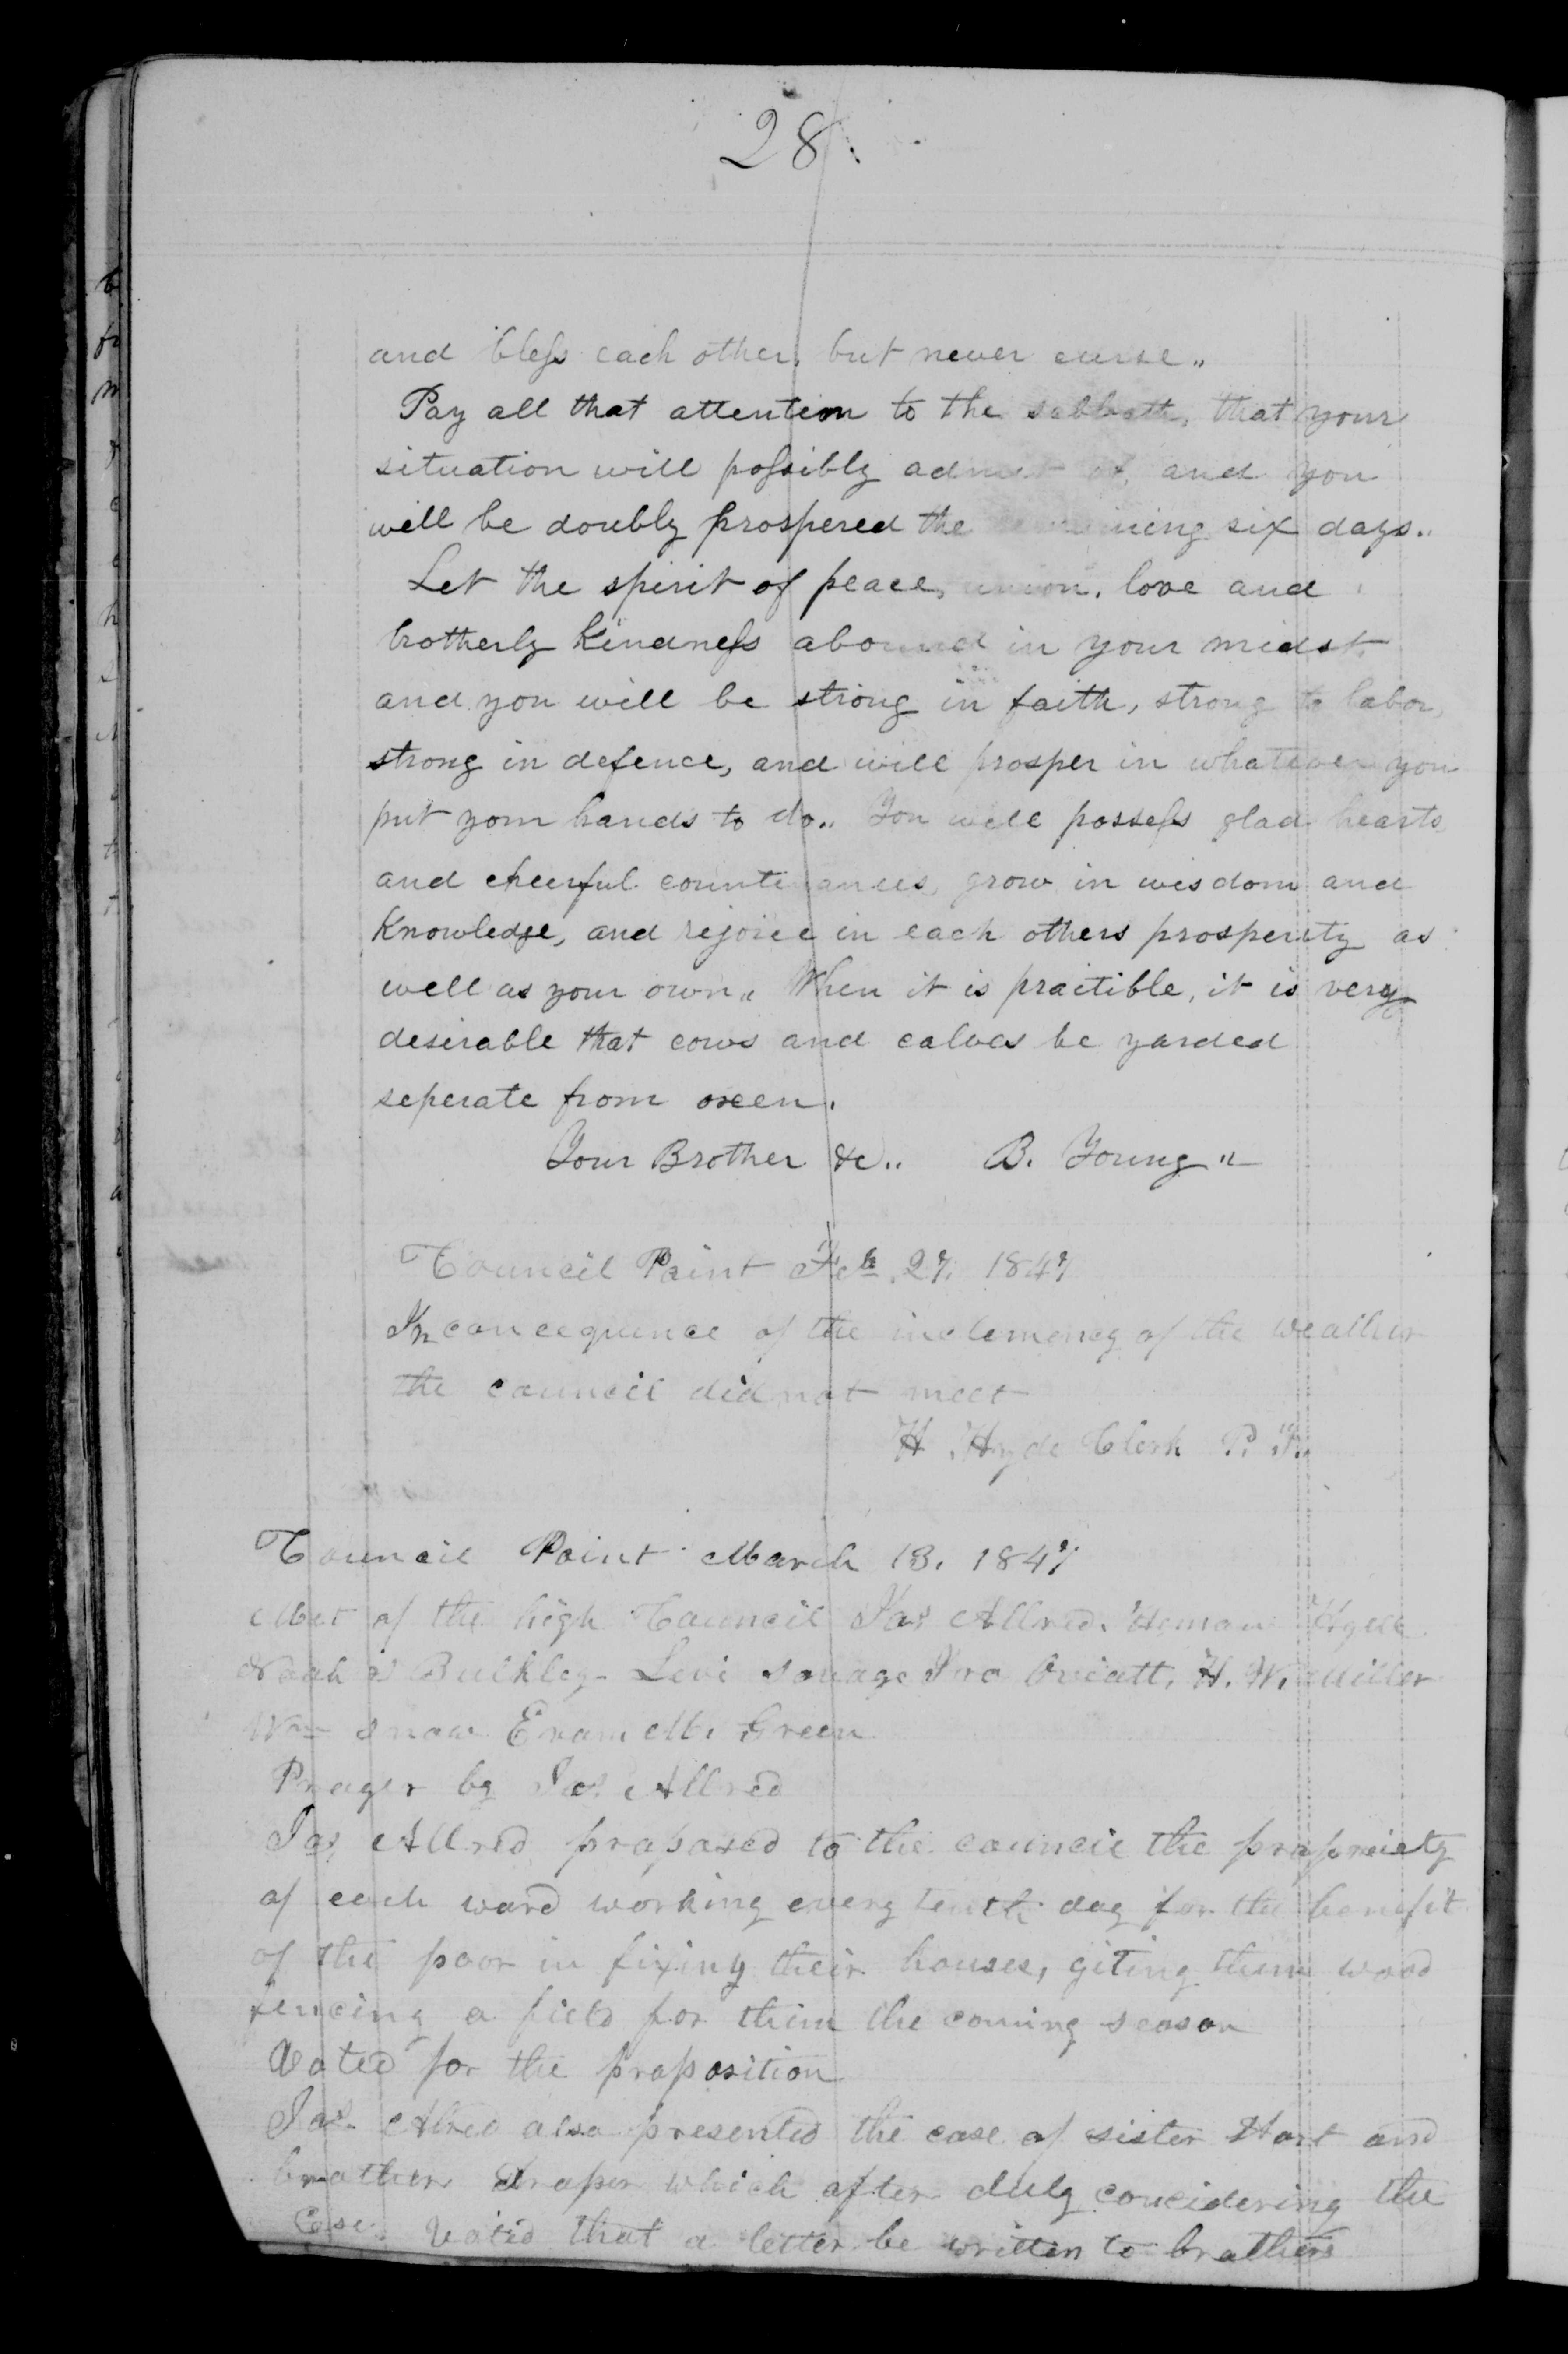 28
and bless each other, but never curse"
Pay all that attention to the sabbath, that your
situation will possibly admit of, and you
will be doubly prospered the remaining six days.
Let the spirit of peace, union, love and
brotherly kindness abound in your midst
and you will be strong in faith, strong to labor,
strong in defence, and will prosper in whatever you
put your hands to do" You will possess glad hearts
and cheerful countenances, grow in wisdom and
knowledge, and rejoice in each others prosperity as
well as your own" When it is practible, it is very
desirable that cows and calves be yarded
seperate from oxen.
Your Brother &c" B. Young"
Council Point Feb 27. 1847
In concequence of the inclemency of the weather
the council did not meet
H. Hyde Clerk P. T.
Council Point March 13. 1847
Met of the high Council Jas Allred. Heman Hyde
Noah Bulkley Levi Savage Jno Oviatt, H. W. Miller
Wm Snow Evam M. Green
Prayer by Jas. Allred
Jas Allred proposed to the council the propriety
of each ward working every tenth day for the benefit
of the poor in fixing their houses, giting them wood
fencing a field for them the coming season
Voted for the proposition
Jas. Alred also presented the case of sister Hart and
brother Draper which after duly concidering the
Case. Voted that a letter be written to brothers
b
m
h